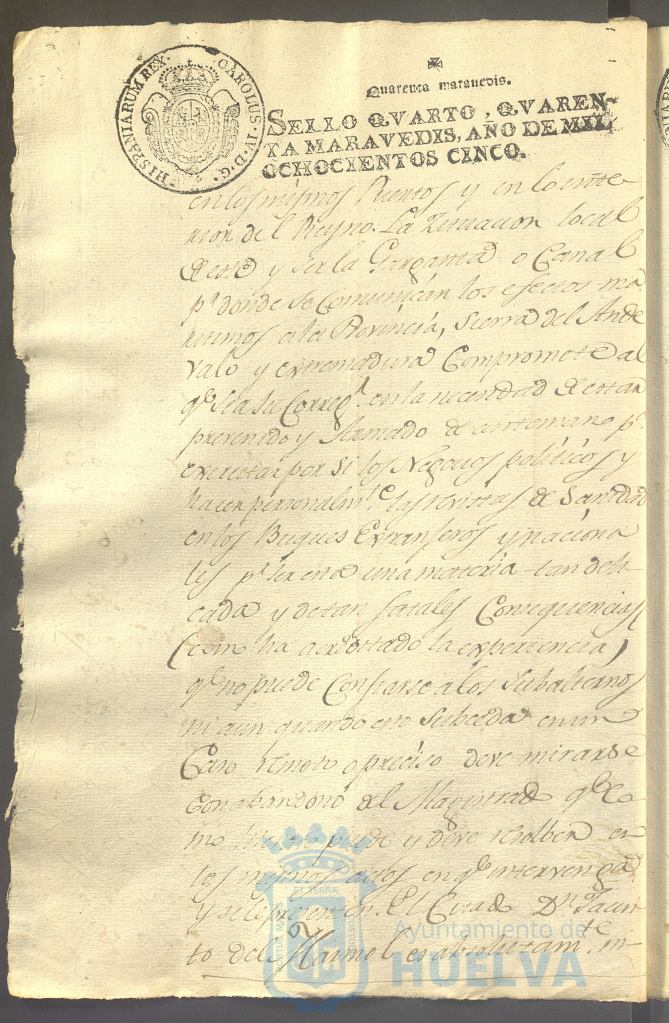 HISPANIARUM REX. CAROLUS. IV. D. G.
Quarenta maravedis.
SELLO QVARTO, QVAREN-
TA MARAVEDIS, AÑO DE MIL
OCHOCIENTOS CINCO.
en los mismos Puertos y en lo inte
rior del Reyno. La Situacion local
de esta y ser la Garganta o Canal
pr. donde se Comunican los efectos ma
ritimos a la Provincia, Sierra del Ande
valo y extremadura Compromete al
qe. sea su Corregr. en la necesidad de estar
prevenido y de antemano pa.
exercitar por si los Negocios politicos y
hacer personalmte. las visitas de Sanidad
en los Buques Extranjeros y naciona
les pr. ser esta una materia tan deli
cada y de tan fatales Consequencias
(como ha acreditado la experiencia)
qe. no puede Confiarse a los Subalternos
ni aun quando esto Subceda en un
Caso remoto o preciso deve mirarse
con abandono el Magistrado qe. co
mo puede y deve resolber en
los mismos actos en qe. intervenga
y se le presenten. El Citado Dn. Jacin
to del es absolutamte. in-
Ayuntamiento de
HUELVA